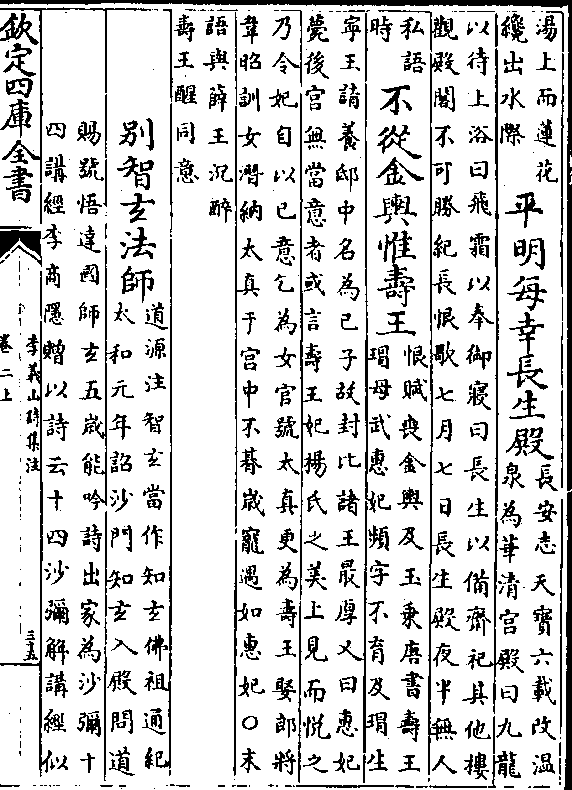 湯上而蓮花
纔出水際
平明每幸長生殿
長安志天寶六載改温
泉為華清宮殿曰九龍
以待上浴曰飛霜以奉御寢曰長生以備齋祀其他樓
觀殿閣不可勝紀長恨歌七月七日長生殿夜半無人
私語
時
不從金輿惟壽王
恨賦喪金輿及玉乘唐書壽王
瑁母武惠妃頻字不育及瑁生
寧王請養邸中名為已子故封比諸王最厚又曰惠妃
薨後宮無當意者或言壽王妃楊氏之美上見而悅之
乃令妃自以已意乞為女官號太真更為壽王娶郎將
韋昭訓女潛納太真于宮中不朞歲寵遇如惠妃○末
語與薛王沉醉
壽王醒同意
別智玄法師
道源注智玄當作知玄佛祖通紀
太和元年詔沙門知玄入殿問道
賜號悟達國師玄五歲能吟詩出家為沙彌十
四講經李商隱贈以詩云十四沙彌解講經似
欽定四庫全書
李義山詩集注
卷二上
三五